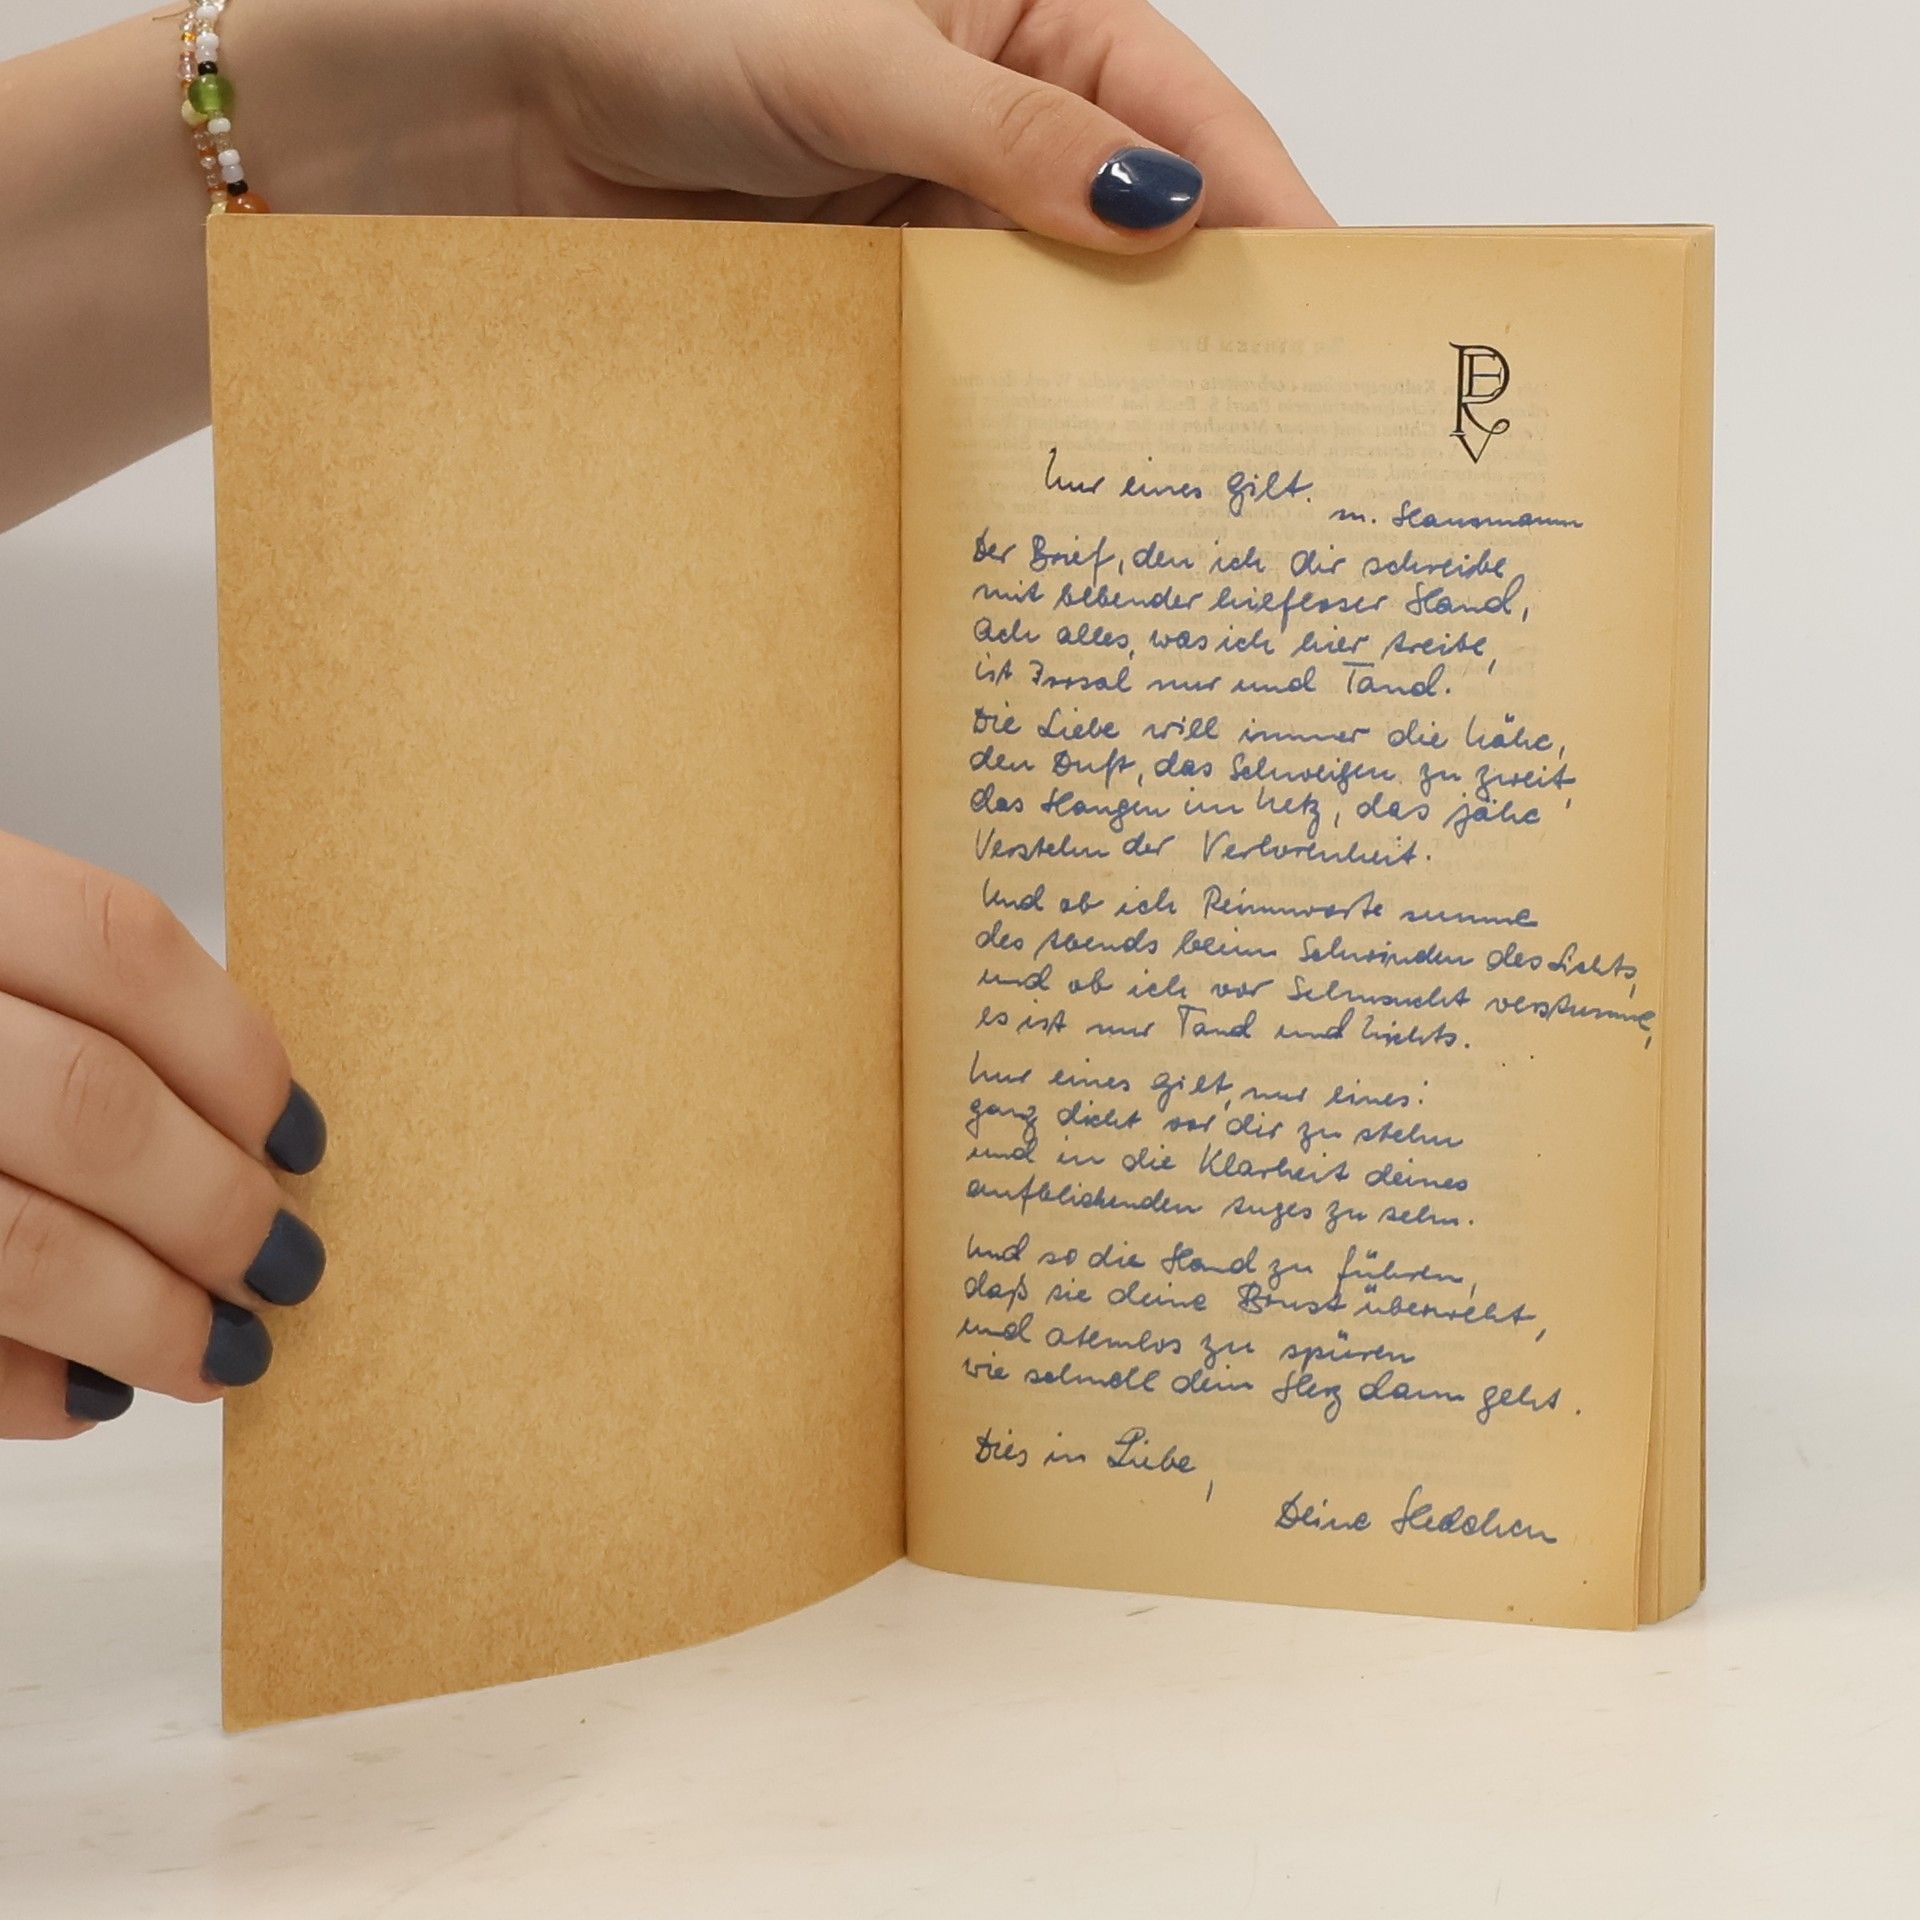 Nur eines gilt.
m. Hausmann
Der Brief, den ich dir schreibe,
mit bebender hilfloser Hand,
Ach alles, was ich hier treibe,
ist Irrsal nur und Tand.
Die Liebe will immer die Nähe,
den Duft, das Schweigen zu zweit,
das Hangen im Netz, das jähe
Verstehn der Verlorenheit.
Und ob ich Reimworte summe
des Abends beim Schwinden des Lichts,
und ob ich vor Sehnsucht verstumme,
es ist nur Tand und Nichts.
Nur eines gilt, nur eines:
ganz dicht vor dir zu stehn
und in die Klarheit deines
aufblickenden Auges zu sehn.
Und so die Hand zu führen,
daß sie deine Brust überweht,
und atemlos zu spüren
wie schnell dein Herz dann geht.
Dies in Liebe,
Deine Hedchen